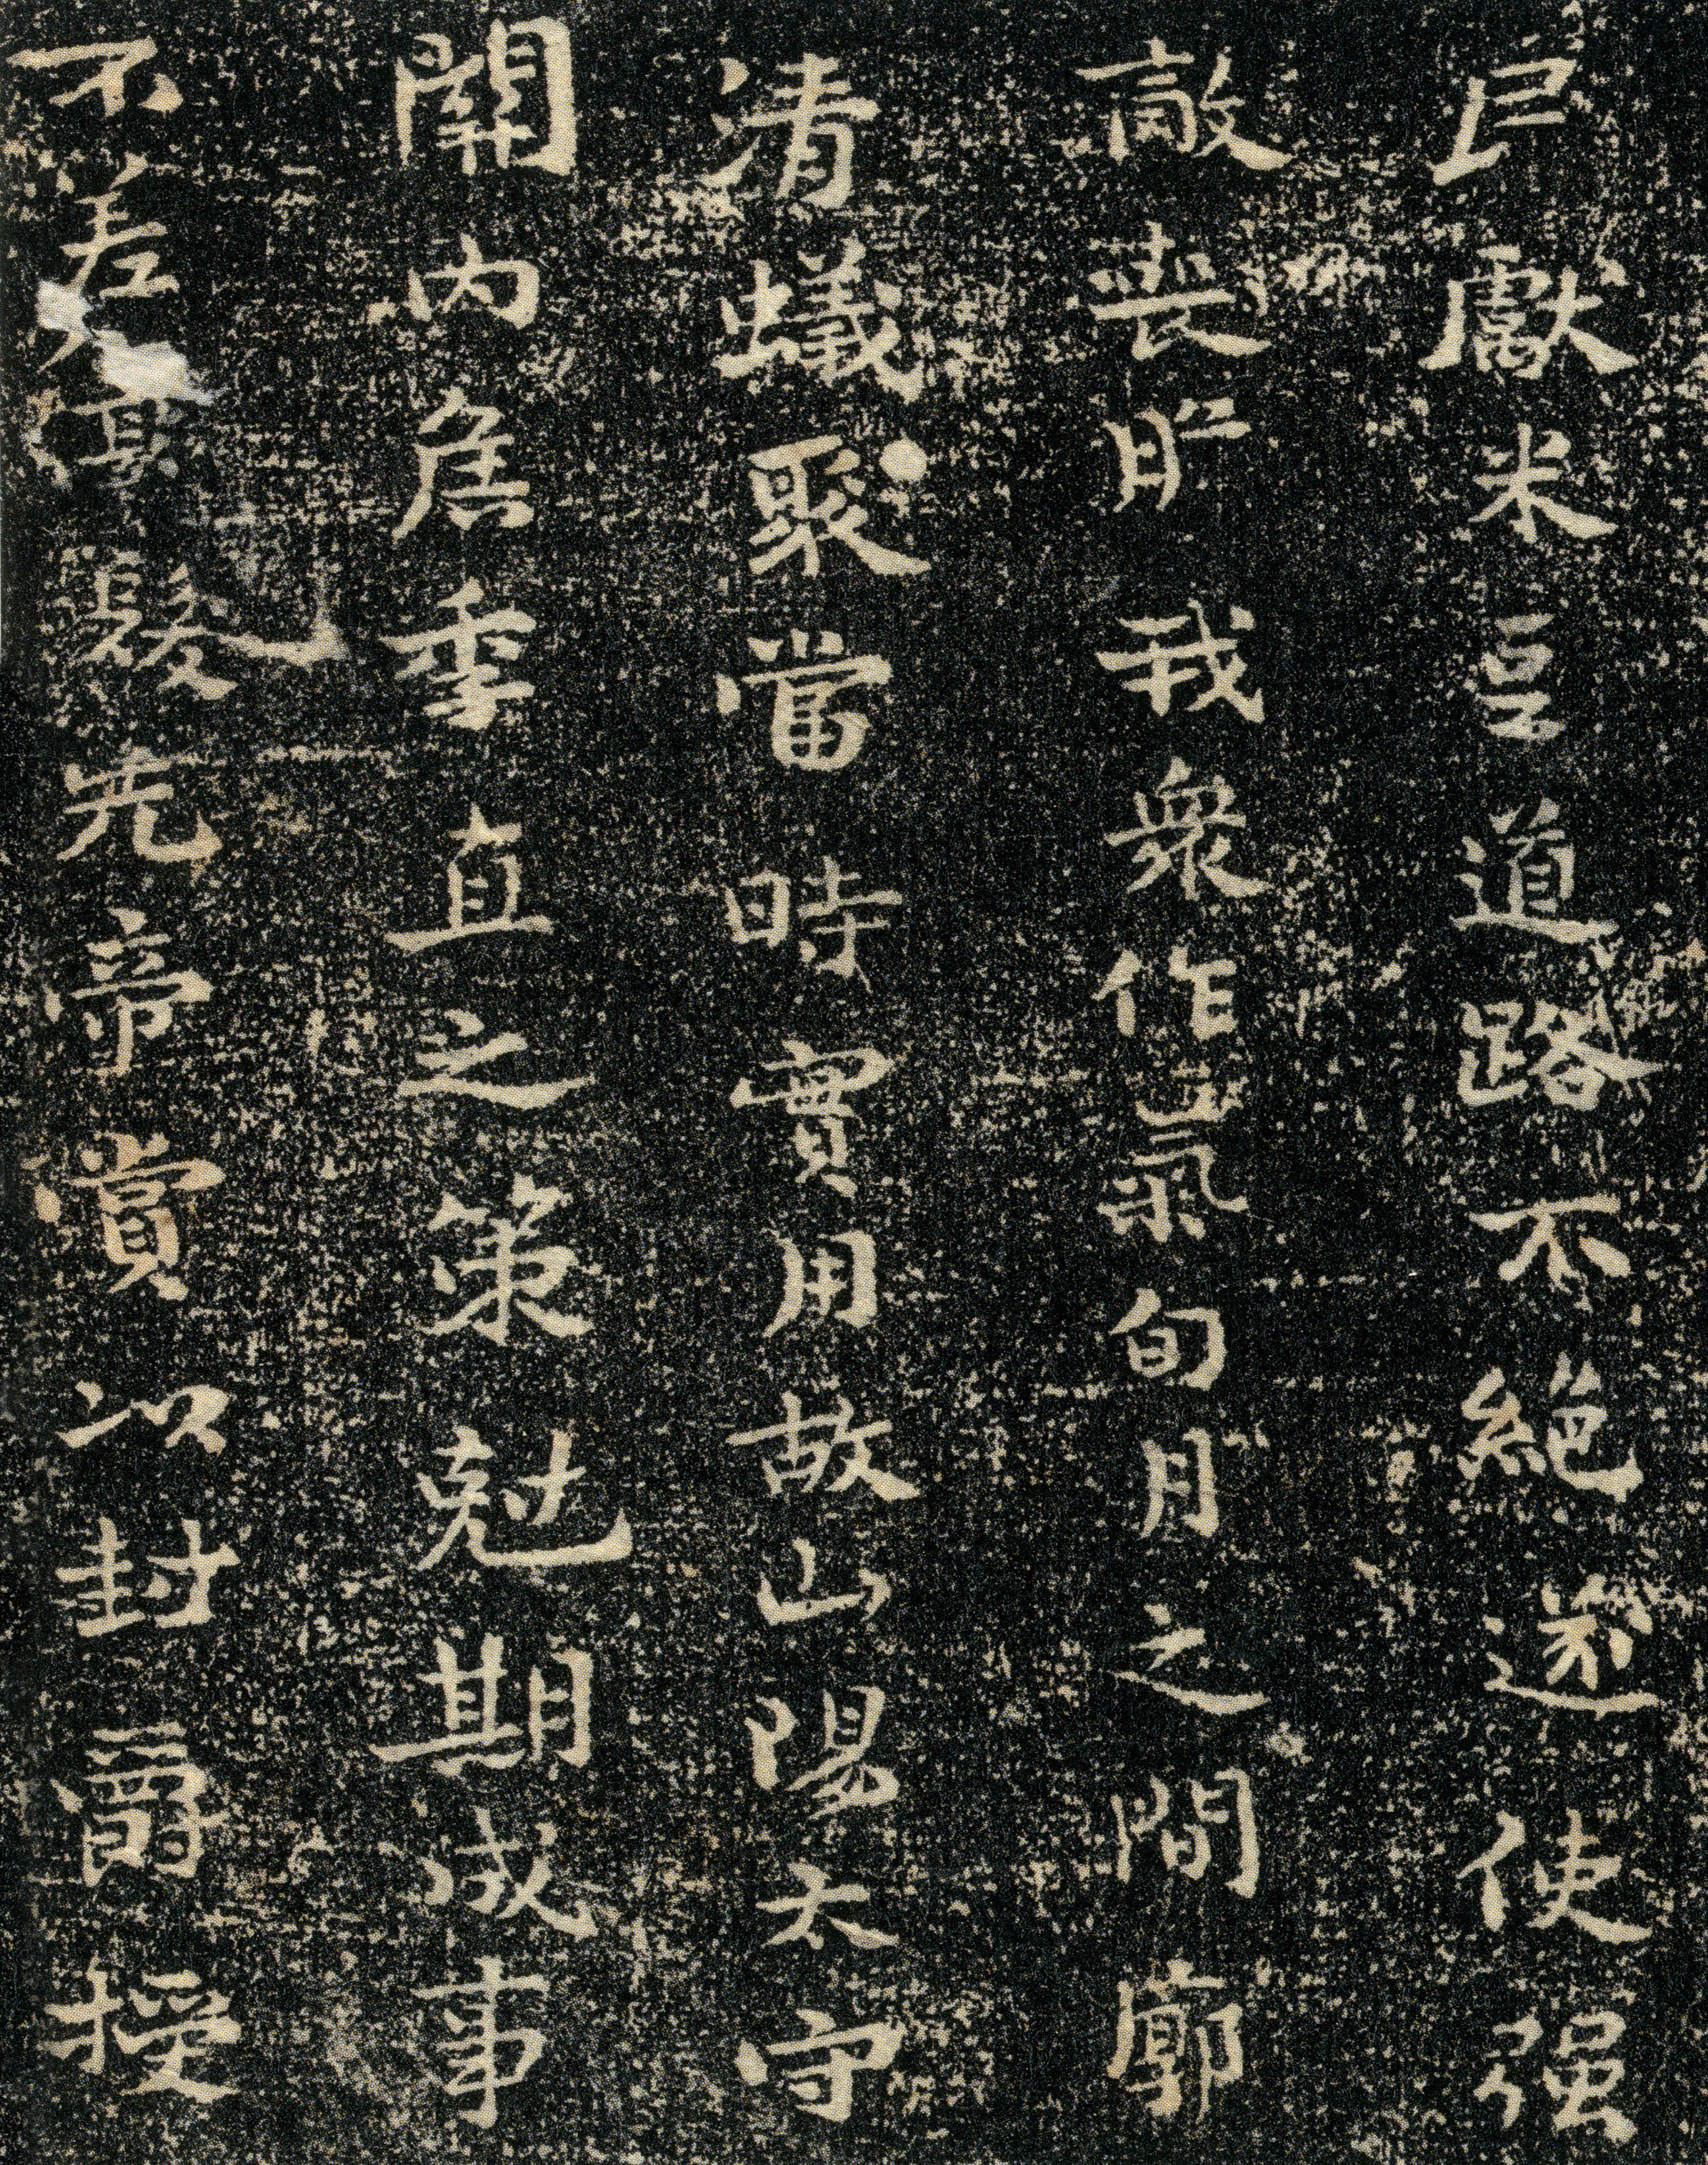 民獻米豆道路不絕遂使强
敵喪膽我衆作氣旬月之間廓
清蟻聚當時實用故山陽太守
關內侯季直之策尅期成事
不差毫髮先帝賞以封爵授